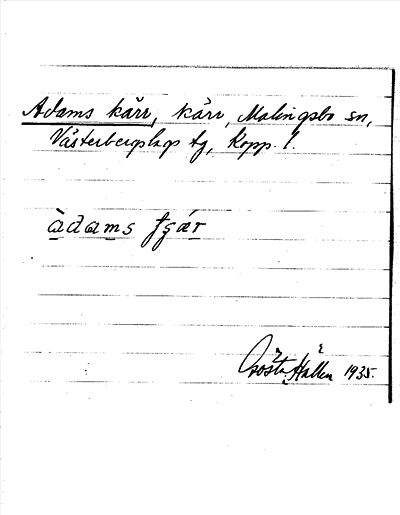 Adams kärr, kärr, Malingsbo sn,
Västerbergslags tg, Kopp. l.
àdams tʂær
Gösta Hallén 1935.